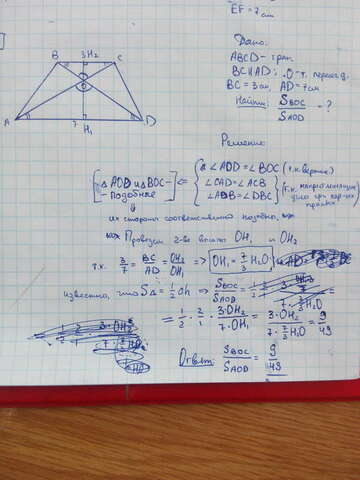 EF = 7 см
B 3 H₂ C
O
A 7 H₁ D
Дано:
ABCD - трап.
BC || AD; O - т. пересеч. д.
BC = 3 см, AD = 7 см
Найти: S_BOC / S_AOD = ?
Решение:
[△ AOD и △ BOC - подобные] ⇐ { ∠AOD = ∠BOC (т.к. вертик.)
∠CAD = ∠ACB
∠ADB = ∠DBC } (т.к. накрест лежащие
при
прямых)
их стороны соответственно
Проведем 2-ве высоты OH₁ и OH₂
т.к. 3/7 = BC/AD = OH₂/OH₁ ⇒ OH₁ = 7/3 H₂O
известно, что S△ = 1/2 ah ⇒ S_BOC / S_AOD =
= 1/2 · 2/1 · 3·OH₂ / 7·OH₁ = 3·OH₂ / 7·7/3 H₂O = 9/49
Ответ: S_BOC / S_AOD = 9/49